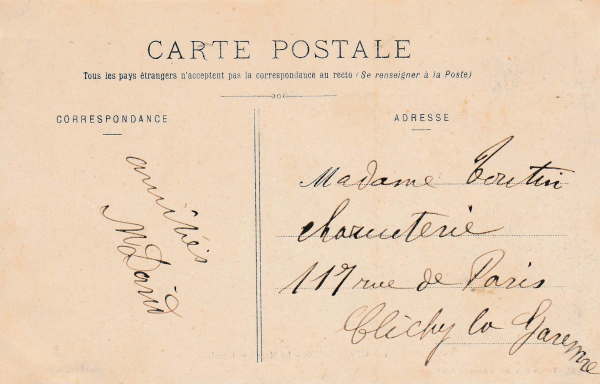 CARTE POSTALE
Tous les pays étrangers n'acceptent pas la correspondance au recto (Se renseigner à la Poste)
CORRESPONDANCE
amitiés
M David
ADRESSE
Madame Toutin
Charcuterie
117 rue de Paris
Clichy la Garenne